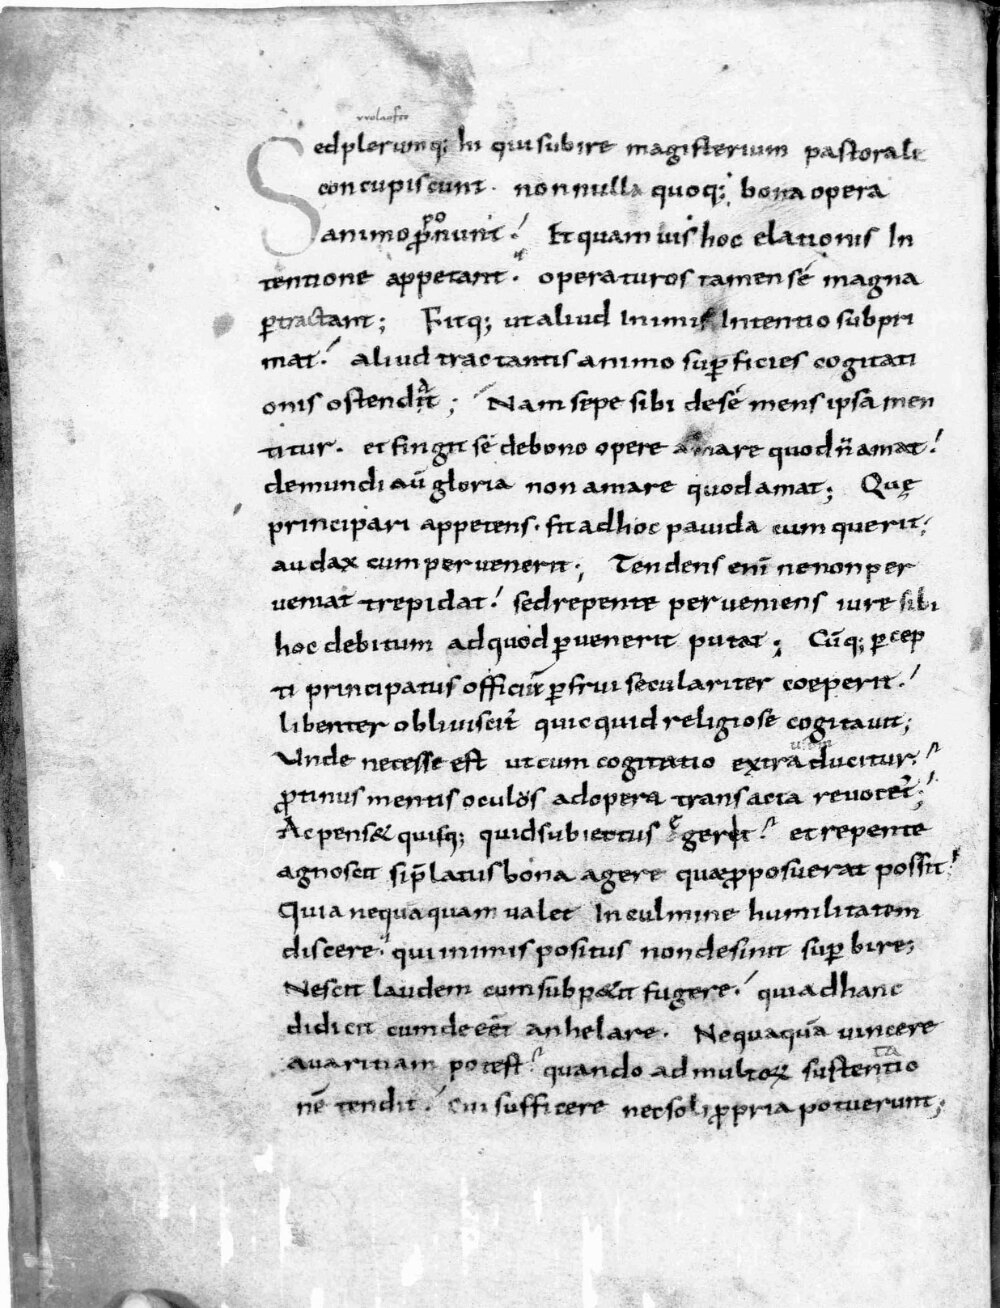 vvolaofto
Sed plerumq; hi qui subire magisterium pastorale
concupiscunt. non nulla quoq; bona opera
animo p̄ponunt! Et quamuis hoc elationis In
tentione appetant. operaturos tamen sé magna
ꝑtractant; Fitq; ut aliud In imis Intentio subpri
mat! aliud tractantis animo suꝑficies cogitati
onis ostendat; Nam sepe sibi de sé mens ipsa men
titur. et fingit sé de bono opere amare quod n̄ amat!
de mundi aū gloria non amare quod amat; Quę
principari appetens. fit ad hoc pauida cum querit;
audax cum peruenerit; Tendens enī ne non per
ueniat trepidat! sed repente perueniens iure sibi
hoc debitum ad quod ꝑuenerit putat; Cūq; ꝑcep
ti principatus officiū ꝑfrui seculariter coeperit!
libenter obliuiscit̄ quicquid religiose cogitauit;
Unde necesse est ut cum cogitatio extra ducitur;
ꝓtinus mentis oculos ad opera transacta reuocet̄;
Ac pens& quisq; quid subiectus egerit? et repente
agnoscit si p̄latus bona agere quae ꝓposuerat possit?
Quia nequaquam ualet In culmine humilitatem
discere. qui in imis positus non desinit suꝑbire;
Nescit laudem cum subp&it fugere! qui ad hanc
didicit cum deeēt anhelare. Nequaquā uincere
auaritiam potest? quando ad multoꝝ sustentatio
nē tendit! cui sufficere nec soli ꝓpria potuerunt;